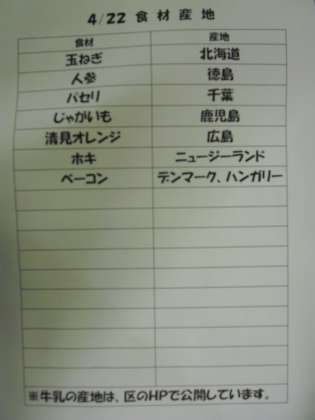 4/22 食材産地
食材 産地
玉ねぎ 北海道
人参 徳島
パセリ 千葉
じゃがいも 鹿児島
清見オレンジ 広島
ホキ ニュージーランド
ベーコン デンマーク、ハンガリー
※牛乳の産地は、区のHPで公開しています。